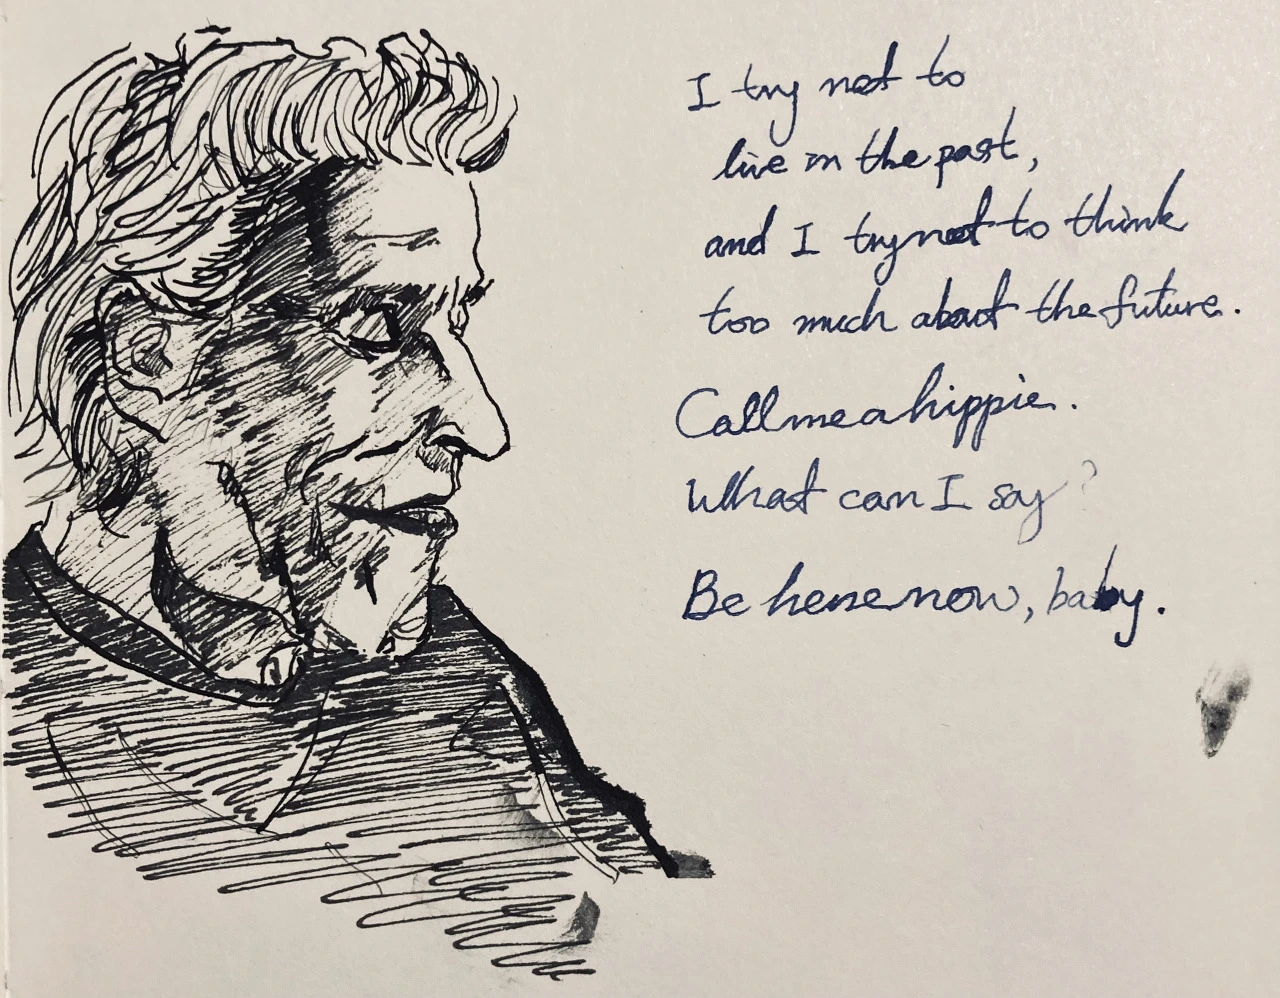 I try not to
live in the past,
and I try not to think
too much about the future.
Call me a hippie.
What can I say?
Be here now, baby.